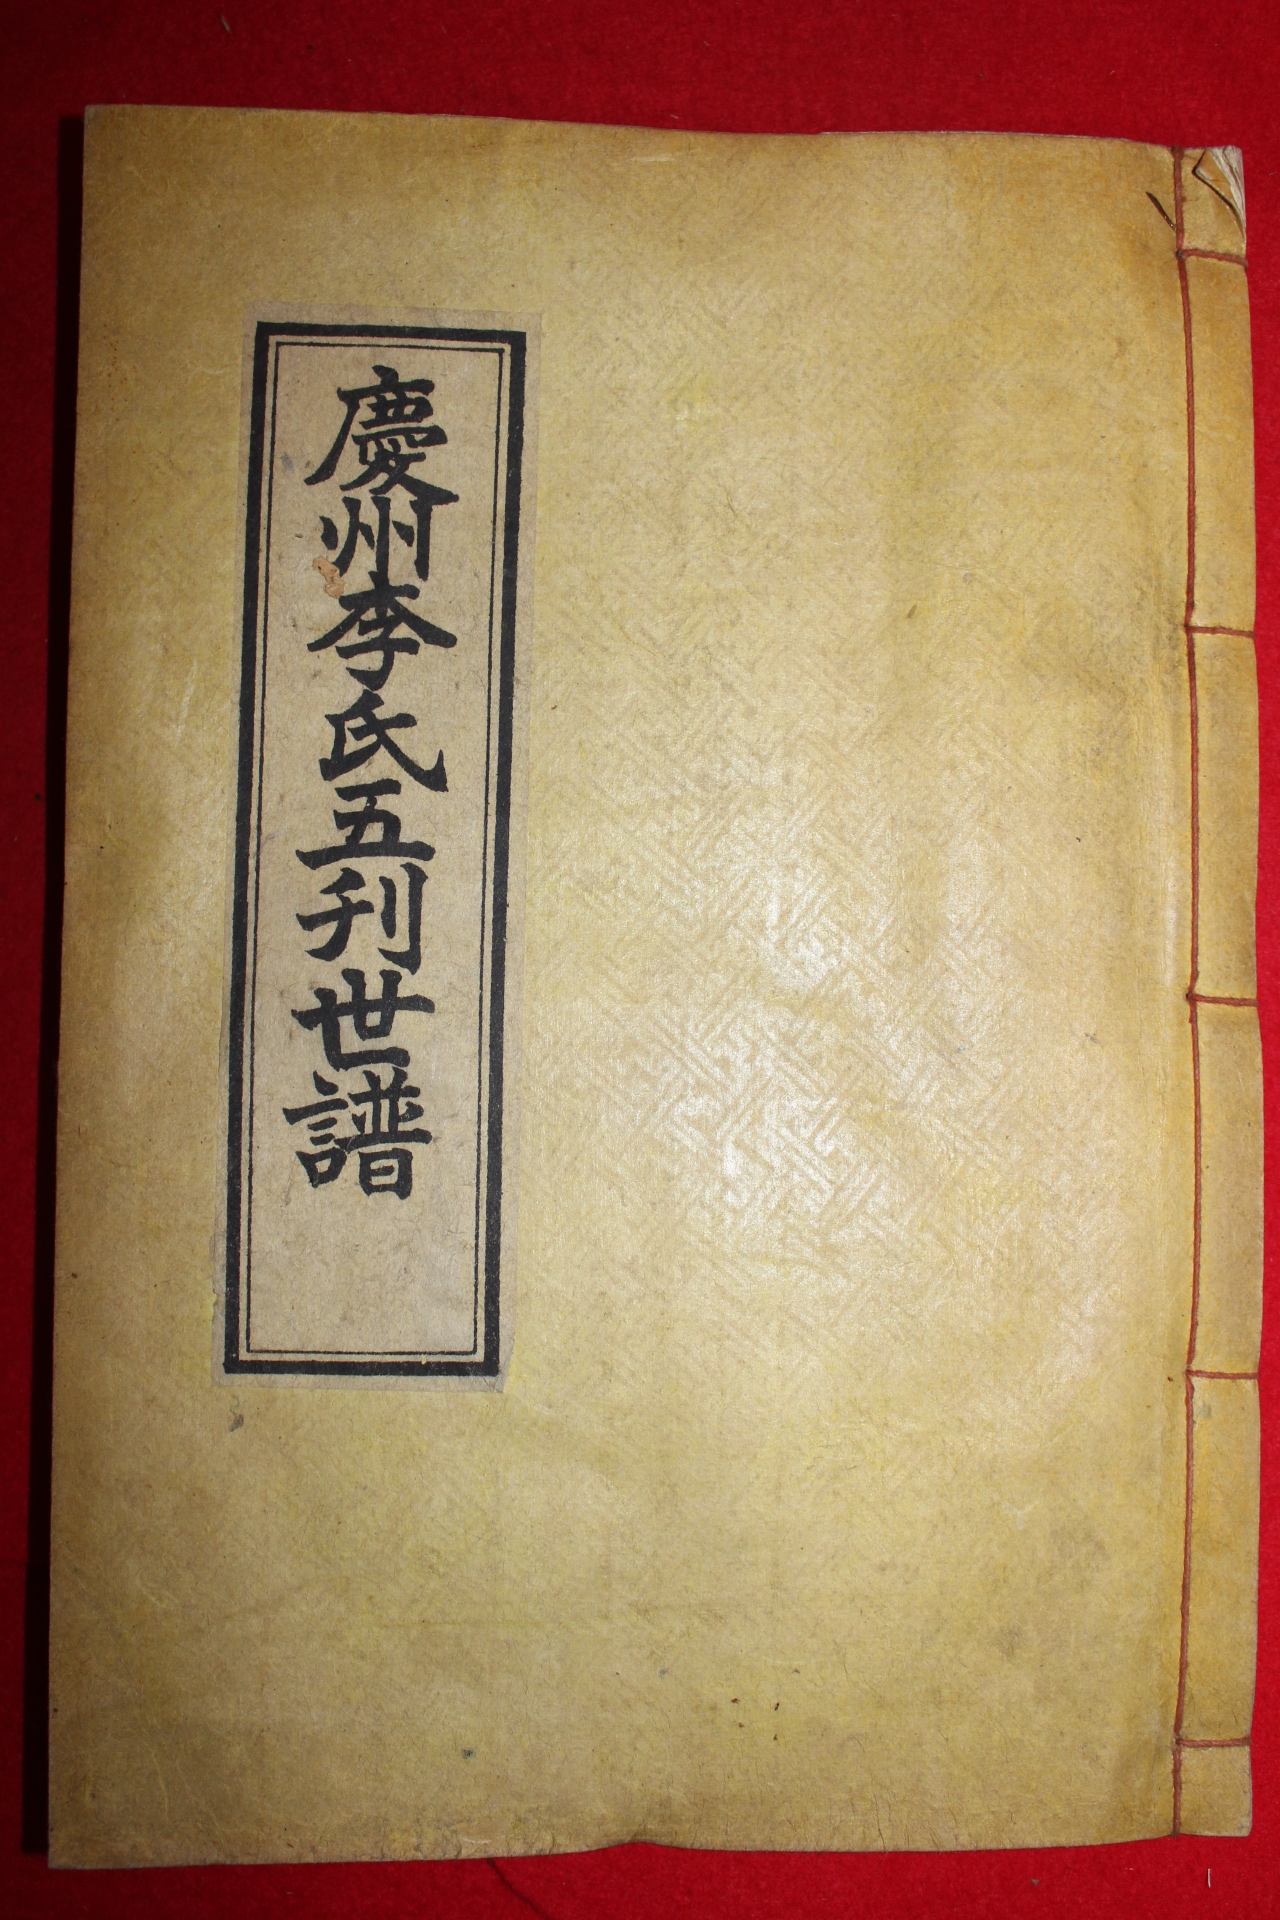 慶州李氏五刊世譜